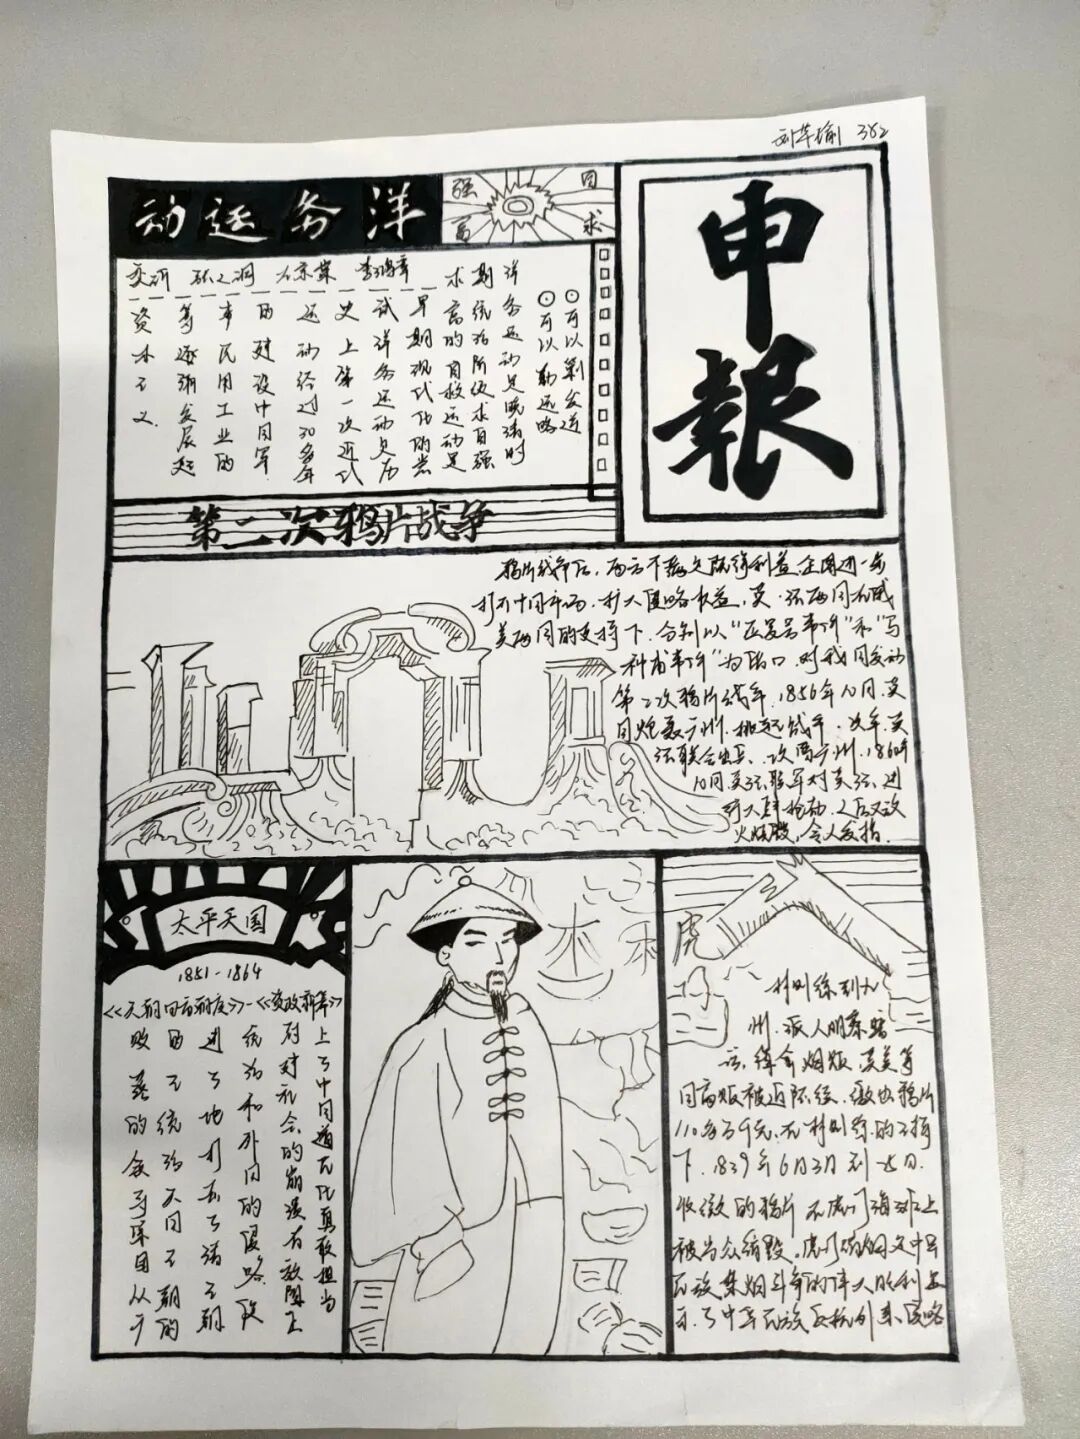 382
申報
洋务运动
自求
强富
李鸿章 左宗棠 张之洞 奕䜣
可以剿发逆
可以勤远略
洋务运动是晚清时
期统治阶级求自强
求富的自救运动是
早期现代化的尝
试洋务运动是历
史上第一次近代
运动经过30多年
的建设中国军
事民用工业的
等逐渐发展起
资本主义.
第二次鸦片战争
鸦片战争后,西方不满足既得利益企图进一步
打开中国市场,扩大侵略权益,英·法两国在俄
美两国的支持下,分别以“亚罗号事件”和“马
神甫事件”为借口,对我国发动
第二次鸦片战争,1856年10月,英
国炮轰广州,挑起战争,次年,英
法联合出兵,攻陷广州,1860年
10月英法联军对英法,进
行大肆抢劫,之后又放
火烧毁,令人发指.
太平天国
1851-1864
<<天朝田亩制度>>-<<资政新篇>>
上了中国道
封对社会的崩溃有
统治和外国的侵略
进了地打击了清王朝
的王统治天国王朝的
败落的
虎
林则徐到广
州,派人明察暗
访,缉拿烟贩,英美等
国商贩被迫陆续,缴出鸦片
110多万千克,在林则徐的主持
下,1839年6月3日到25日,
收缴的鸦片在虎门海滩上
被当众销毁,虎门销烟是中华
民族禁烟斗争的伟大胜利显
示了中华民族反抗外来侵略